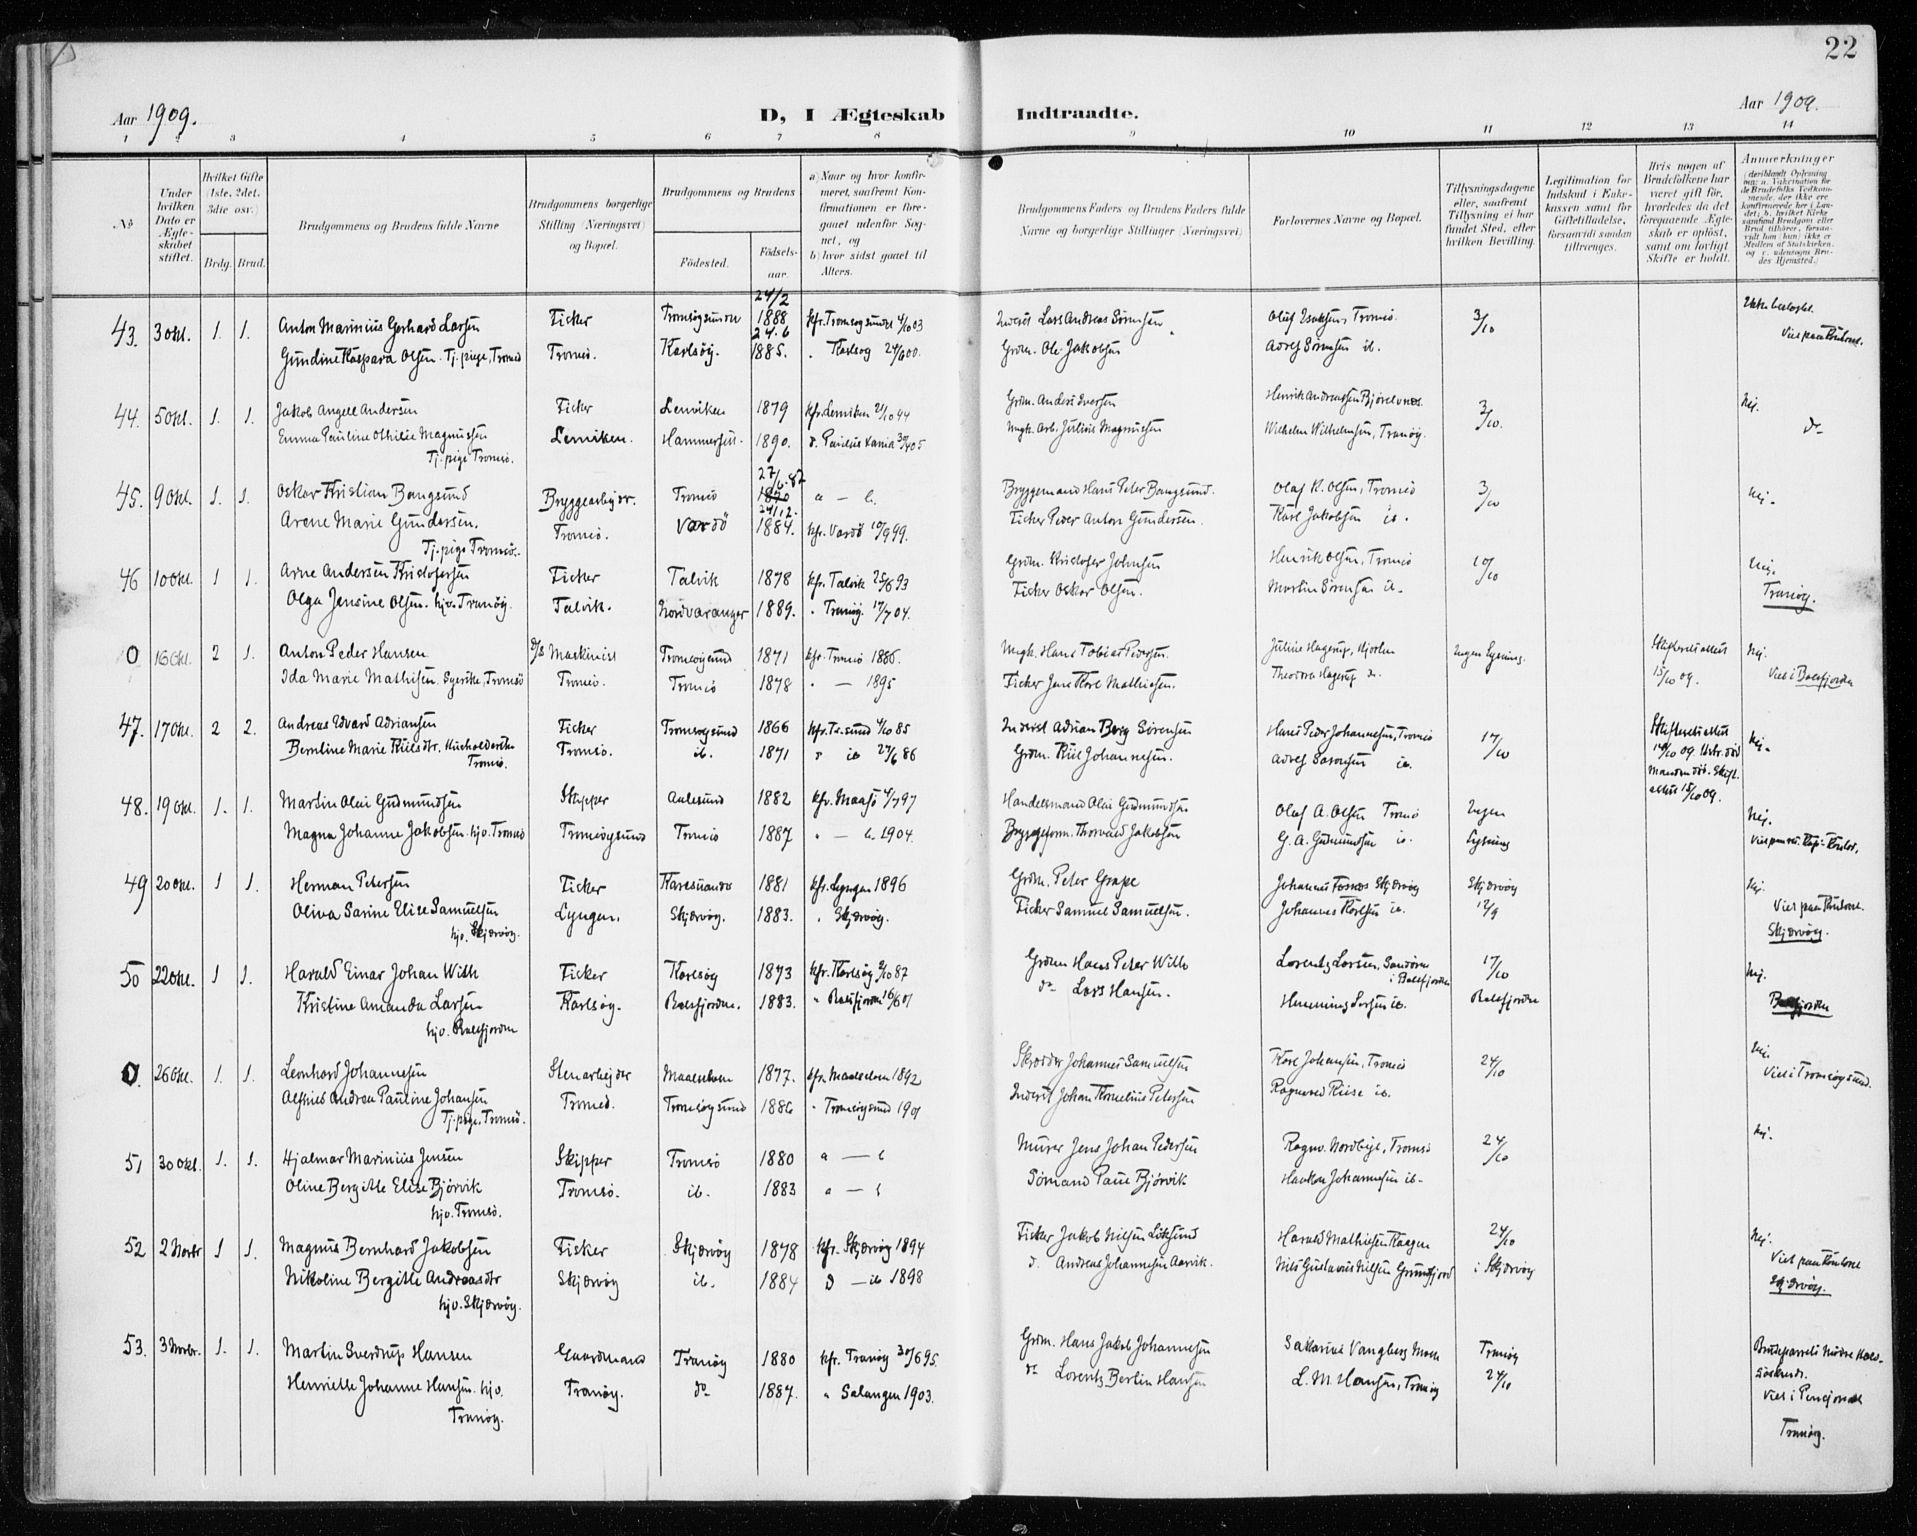 22
Aar 1909.
D, I Ægteskab Indtraadte.
Aar 1909.
1 2 3 4 5 6 7 8 9 10 11 12 13 14
No
Under hvilken Dato er Ægteskabet stiftet.
Hvilket Gifte (1ste, 2det, 3die osv.)
Brdg. Brud.
Brudgommens og Brudens fulde Navne
Brudgommens borgerlige Stilling (Næringsvei) og Bopæl.
Brudgommens og Brudens
Fødested.
Fødselsaar.
a) Naar og hvor konfirmeret, saafremt Konfirmationen er foregaaet udenfor Sognet, og
b) hvor sidst gaaet til Alters.
Brudgommens Faders og Brudens Faders fulde Navne og borgerlige Stillinger (Næringsvei)
Forlovernes Navne og Bopæl.
Tillysningsdagene eller, saafremt Tillysning ei har fundet Sted, efter hvilken Bevilling.
Legitimation for Indskud i Enkekassen samt for Giftetilladelse, forsaavidt saadan tiltrænges.
Hvis nogen af Brudefolkene har været gift før, hvorledes da det foregaaende Ægteskab er opløst, samt om lovligt Skifte er holdt.
Anmerkninger
43. 3 Okt. 1. 1. Anton Marinius Gerhard Larsen Ficker Tromsøysund 24/2 1888 kfr. Tromsøysund 4/10 03 Inderst Lars Andreas Sørensen Oluf Isaksen, Tromsø. 3/10
Gundine Kaspara Olsen. Tj. pige, Tromsø Tromsø. Karlsøy. 24.6 1885. " Karlsøy 24/6 00. Grdm. Ole Jakobsen Adolf Sørensen ib. Viet paa Kontoret.
44. 5 Okt. 1. 1. Jakob Angell Andersen Ficker Lenviken 1879 kfr. Lenviken Grdm. Anders Iversen Henrik Andreassen Bjørelvnes. 3/10. Nej.
Emma Pauline Othilie Magnussen Lenviken. 1890. Arb. Julius Magnussen Wilhelm Wilhelmsen, Tranøy. do
Tj. pige Tromsø.
45. 9 Okt. 1. 1. Oskar Kristian Bangsund Bryggearbejder. Tromsø 27/6.82 1870 a — b. Bryggemand Hans Peter Bangsund. Olaf K. Olsen, Tromsø 3/10 Nej.
Arene Marie Gundersen. Tromsø. Vardö 24/12. 1884. kfr. Vardö 10/9 99. Ficker Peder Anton Gundersen. Karl Jakobsen ib.
Tj. pige Tromsø.
46 10 Okt. 1 1. Arne Andersen Kristofersen Ficker Talvik 1878 kfr. Talvik 25/6 93 Grdm. Kristofer Johnsen Henrik Olsen, Tromsø 10/10 Nej.
Olga Jensine Olsen. hjv. Tranøy. Talvik. Nordvaranger 1889. " Tranøy. 17/7 04. Ficker Oskar Olsen. Martin Sørensen ib. Tranøy.
0 16 Okt. 2 1. Anton Peder Hansen D/S Maskinist Tromsøysund 1871 kfr. Tromsø 1886. Ungk. Hans Tobias Pedersen. Julius Hagerup, Ingen Lysning. Skifteretsattest Nej.
Ida Marie Mathisen. Syerske, Tromsø Tromsø. Tromsø 1878 " — 1895 Ficker Jens Karl Mathisen. Theodora Hagerup do. 15/10 09. Viet i Balsfjorden
47. 17 Okt. 2 2. Andreas Edvard Adriansen Ficker Tromsøysund 1866 kfr. Tr.sund 4/10 85 Inderst Adrian Berg Sørensen Hans Peder Johannesen, Tromsø 17/10 Skifteretsattest Nej.
Berntine Marie Kielsdtr. Husholderske Tromsø. ib. 1871 " ib 27/6 86 Grdm. Kiil Johannesen. Adolf Sørensen ib. 14/10 09 Hustr. død
Tromsø. Manden død. Skift.
attest 15/10 09.
48. 19 Okt. 1. 1. Martin Olai Gudmundsen Skipper Aalesund 1882 kfr. Maasø 4/7 97 Handelsmand Olai Gudmundsen Olaf A. Olsen Tromsø Ingen Nej.
Magna Johanne Jakobsen. hjv. Tromsø Tromsøysund Tromsø 1887 " — b. 1904. Bryggeform. Thorvald Jakobsen G. A. Gudmundsen ib. Lysning
49 20 Okt. 1 1. Herman Petersen Ficker Karesuando 1881 kfr. Lyngen 1896 Grdm. Peter Grape Johannes Fosnes Skjærvøy Skjærvøy Nej.
Oliva Sarine Elise Samuelsen Lyngen. Skjærvøy. 1883. " Skjærvøy. Ficker Samuel Samuelsen. Johannes Karlsen ib. 12/9 Viet paa Kontoret.
hjv. Skjærvøy. Skjærvøy.
50 22 Okt. 1 1. Harald Einar Johan With Ficker Karlsøy 1873 kfr. Karlsøy 9/10 87 Grdm Hans Peter With Lorentz Larsen, Sandøren i Balsfjorden 17/10 Nej.
Kristine Amanda Larsen Karlsøy. Balsfjorden. 1883. " Balsfjorden 16/6 01 do Lars Hansen. Hemming Larsen ib. Balsfjorden Balsfjorden
hjv. Balsfjorden
0. 26 Okt. 1. 1. Leonhard Johannesen Stenarbejder Maalselven 1877. kfr. Maalselven 1892 Skræder Johannes Samuelsen Karl Johansen, Tromsø 24/10 Nej.
Andrea Pauline Johansen Tromsø. Tromsøysund 1886 " Tromsøysund 1901 Inderst Johan Kornelius Petersen Ragnvald Riise ib. Viet i Tromsøysund.
Tj. pige, Tromsø.
51 30 Okt. 1. 1. Hjalmar Marinius Jensen Skipper Tromsø 1880 a — b Murer Jens Johan Pedersen Ragnv. Nordby, Tromsø 24/10 Nej.
Oline Bergitte Elise Bjørvik Tromsø. ib. 1883 a — b Sømand Paul Bjørvik Haakon Johannesen ib.
hjv. Tromsø.
52 2 Novbr 1 1. Magnus Bernhard Jakobsen Ficker Skjærvøy 1878 kfr. Skjærvøy 1894 Ficker Jakob Nilsen Harald Mathisen 24/10 Nej.
Nikoline Bergitte Andreasdtr Skjærvøy ib. 1884 " — ib 1898 d. Andreas Johannesen Aarvik. Nils Gustavus Nilsen Grundfjord i Skjærvøy Viet paa Kontoret
hjv. Skjærvøy. Skjærvøy.
53. 3 Novbr. 1. 1. Martin Sverdrup Hansen Gaardmand Tranøy 1880 kfr. Tranøy 30/6 95. Grdm. Hans Jakob Johannesen Sakarius Vangberg Tranøy
Henriette Johanne Hansen. hjv. Tranøy. do 1887. " Salangen 1903. do Lorentz Bertin Hansen L. M. Hansen, Tranøy 24/10
Tranøy. Tranøy.